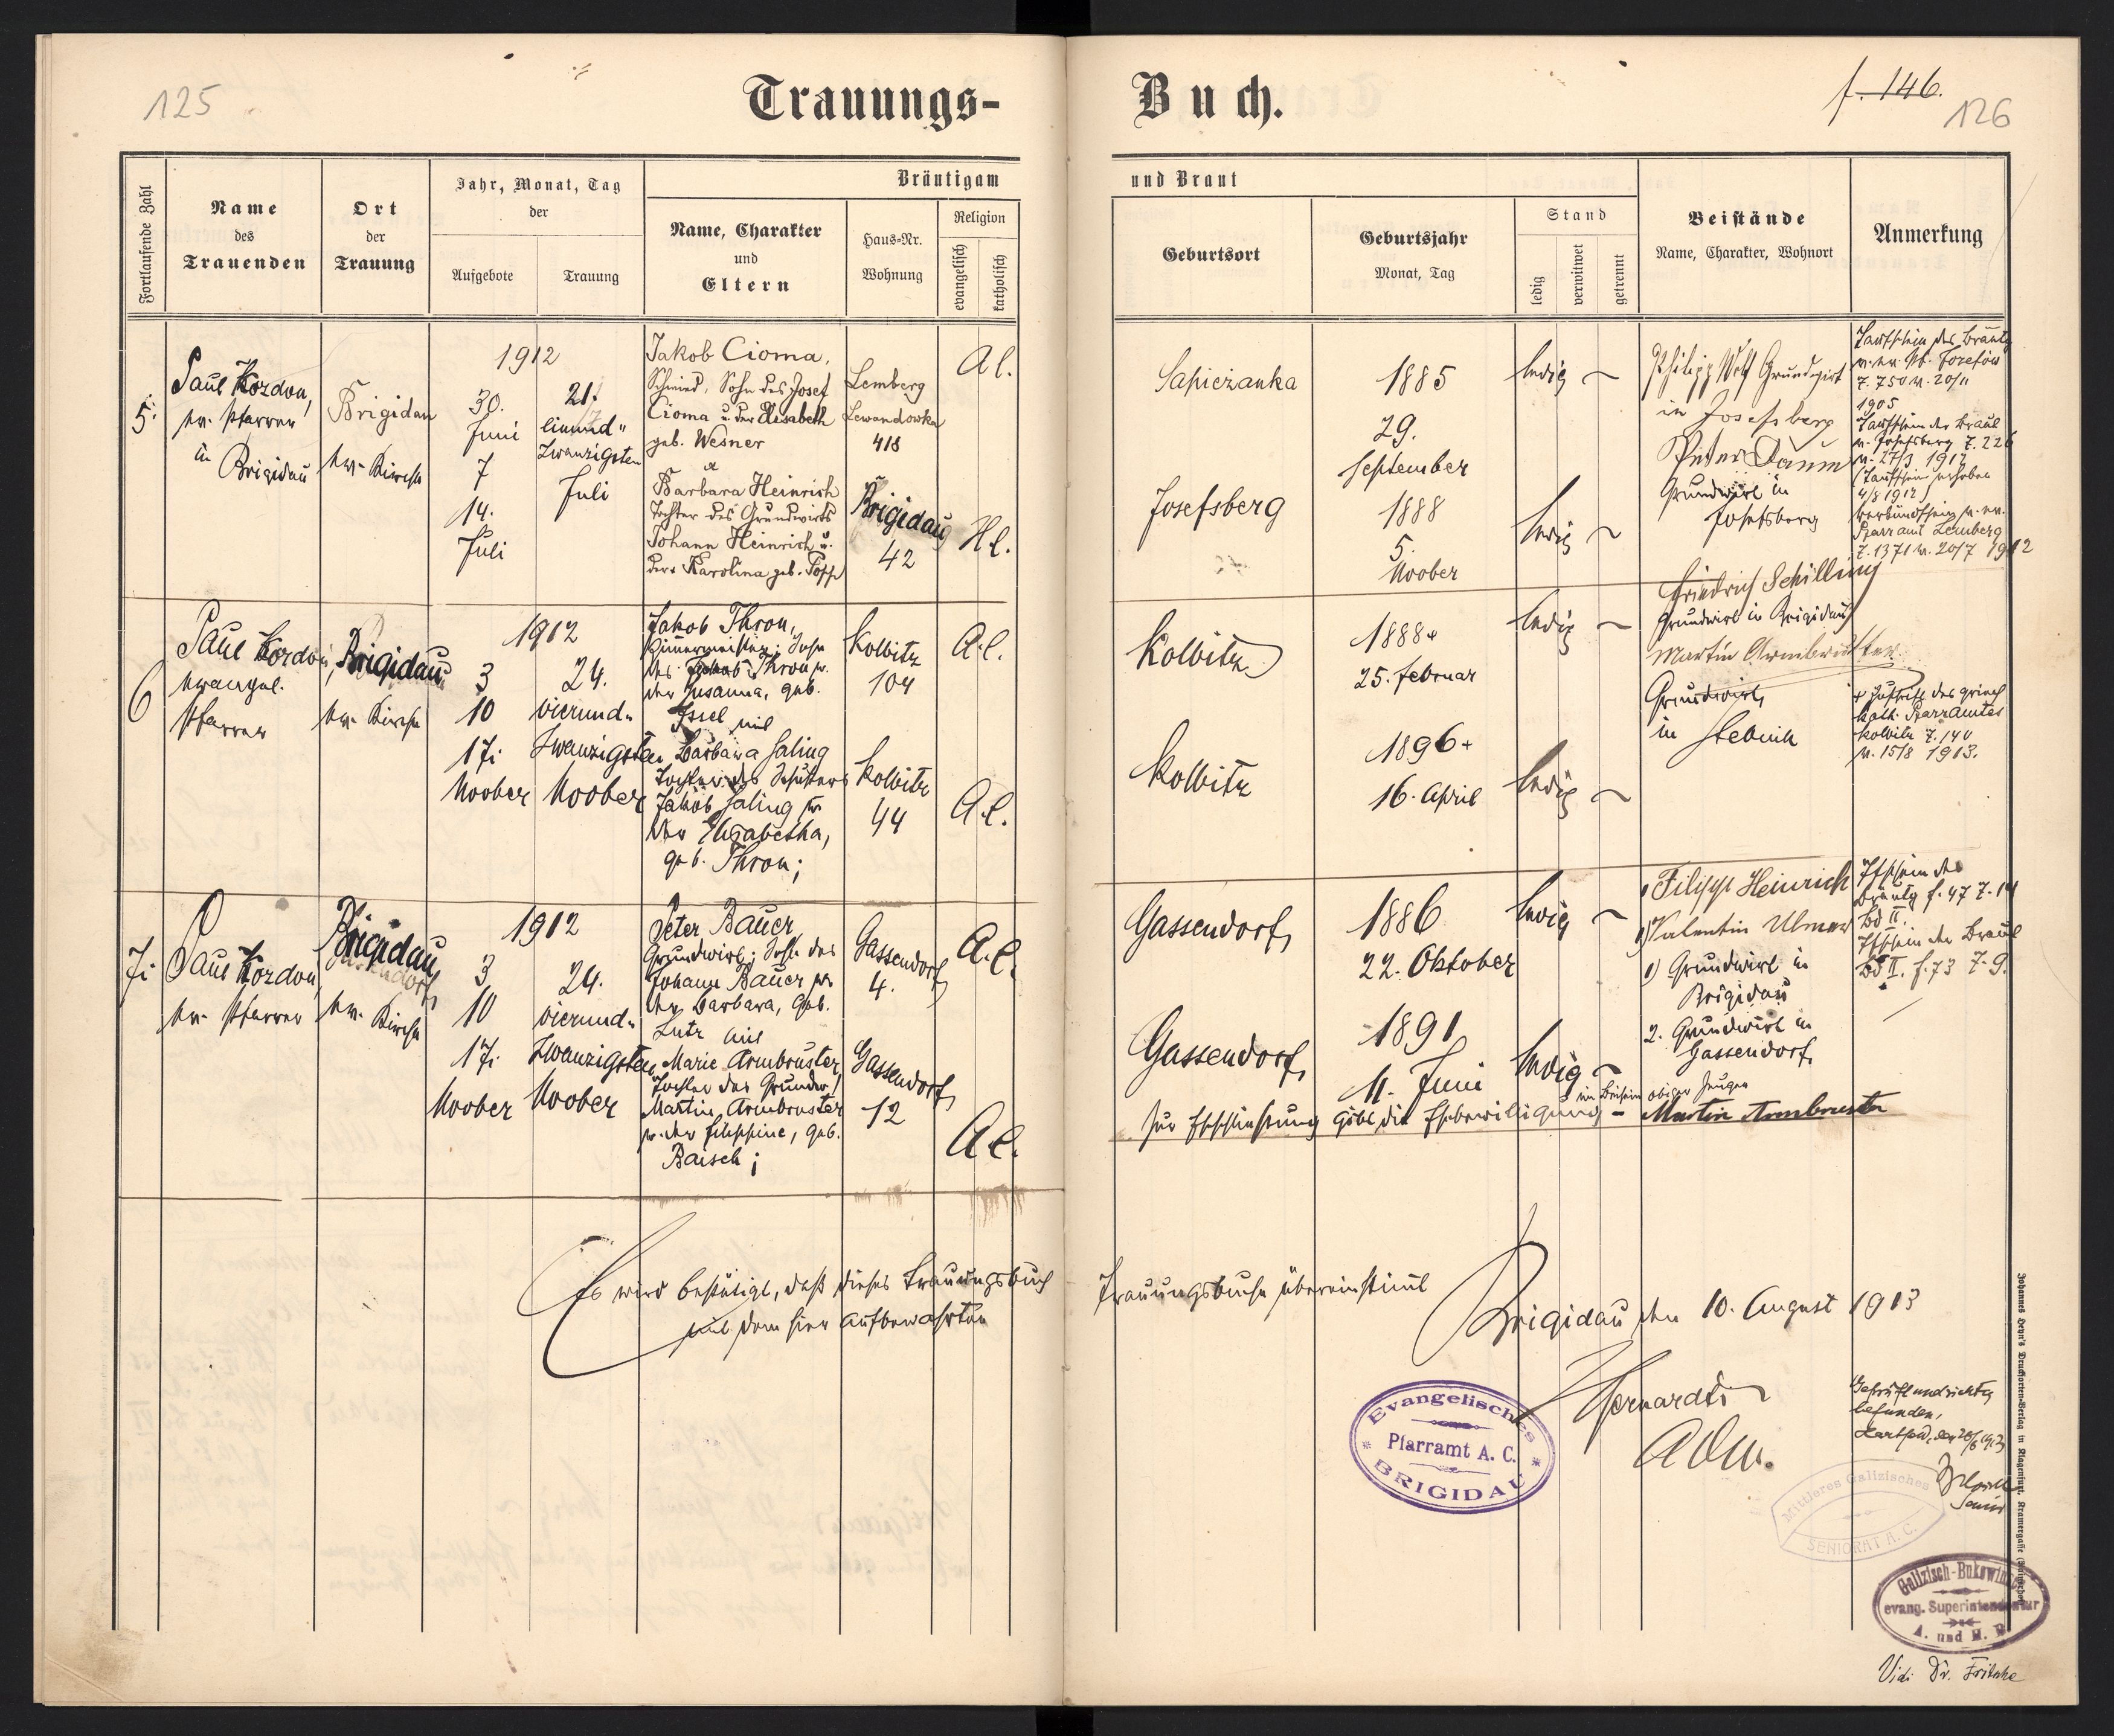 125
Trauungs-
Buch.
f. 146.
126
Fortlaufende Zahl
Name
des
Trauenden
Ort
der
Trauung
Jahr, Monat, Tag
der
Aufgebote
Trauung
Bräutigam
Name, Charakter
und
Eltern
Haus-Nr.
Wohnung
Religion
evangelisch
katholisch
und Braut
Geburtsort
Geburtsjahr
Monat, Tag
Stand
ledig
verwitwet
getrennt
Beistände
Name, Charakter, Wohnort
Anmerkung
5.
Paul Kordon,
ev. Pfarrer
in
Brigidau
Brigidau
ev. Kirche
1912
30.
Juni
7
14.
Juli
21.
einund"
Zwanzigsten
Juli
Jakob Cioma,
Schmied, Sohn des Josef
Cioma u. der Elisabeth
geb. Wesner
Lemberg
Lewandowka
418
A C.
Barbara Heinrich
Tochter des Grundwirts
Johann Heinrich u.
der Karolina geb. Popp
Brigidau
42
H C.
Sapieżanka
1885
29.
September
ledig
Josefsberg
1888
5.
Noober
ledig
Philipp Wolf Grundwirt
in Josefsberg
Peter Daum
Grundwirt in
Josefsberg
Taufschein des Bräutg
1905
Taufschein der Braut
v. Josefsberg Z. 226
v. 27/3 1912
(Taufschein erhoben
4/8 1912)
Pfarramt Lemberg
Z. 1371 v. 20/7 1912
6
Paul Kordon,
evangel.
Pfarrer
Brigidau
ev. Kirche
1912
3
10
17.
Noober
24.
vierund"
Zwanzigsten
Noober
Jakob Thron,
Zimmermeister; Sohn
des Jakob Thron u.
der Susanna, geb.
Issel mit
Kolbitz
104
A. C.
Barbara Saling
Tochter des
Jakob Saling u.
der Elisabetha,
geb. Thron;
Kolbitz
44
A C.
Kolbitz
1888+
25. Februar
ledig
Kolbitz
1896+
16. April
ledig
Friedrich Schilling
Grundwirt in Brigidau
Martin Armbrüster
Grundwirt
in Stebnik
kath. Pfarramtes
Kolbitz Z. 140
v. 15/8 1913.
7.
Paul Kordon,
ev. Pfarrer
Brigidau
ev. Kirche
1912
3
10
17.
Noober
24.
vierund"
Zwanzigsten
Noober
Peter Bauer,
Grundwirt; Sohn des
Johann Bauer u.
der Barbara, geb.
Lutz mit
Gassendorf
4.
A. C.
Marie Armbruster,
Tochter des Grundw.
Martin Armbruster
u. der Filippine, geb.
Baisch;
Gassendorf
12
A C.
Gassendorf
1886
22. Oktober
ledig
Gassendorf
1891
11. Juni
ledig
Filipp Heinrich
Valentin Ulmer
1) Grundwirt in
Brigidau
2. Grundwirt in
Gassendorf
Bräutg f. 47 Z. 14
Bd II.
der Braut
Bd II. f. 73 Z. 9.
im Beisein obiger Zeugen
Zur Eheschließung gibt die Ehebewilligung – Martin Armbruster
Es wird bestätigt, daß dieses Trauungsbuch
mit dem hier aufbewahrten
Trauungsbuche übereinstimmt
Brigidau den 10. August 1913
Adm.
Evangelisches
Pfarramt A. C.
BRIGIDAU
Geprüft und richtig
befunden,
Mittleres Galizisches
SENIORAT A. C.
Galizisch-Bukowin
evang. Superintendentur
A. und H. B
Vidi Dr. Fritsche